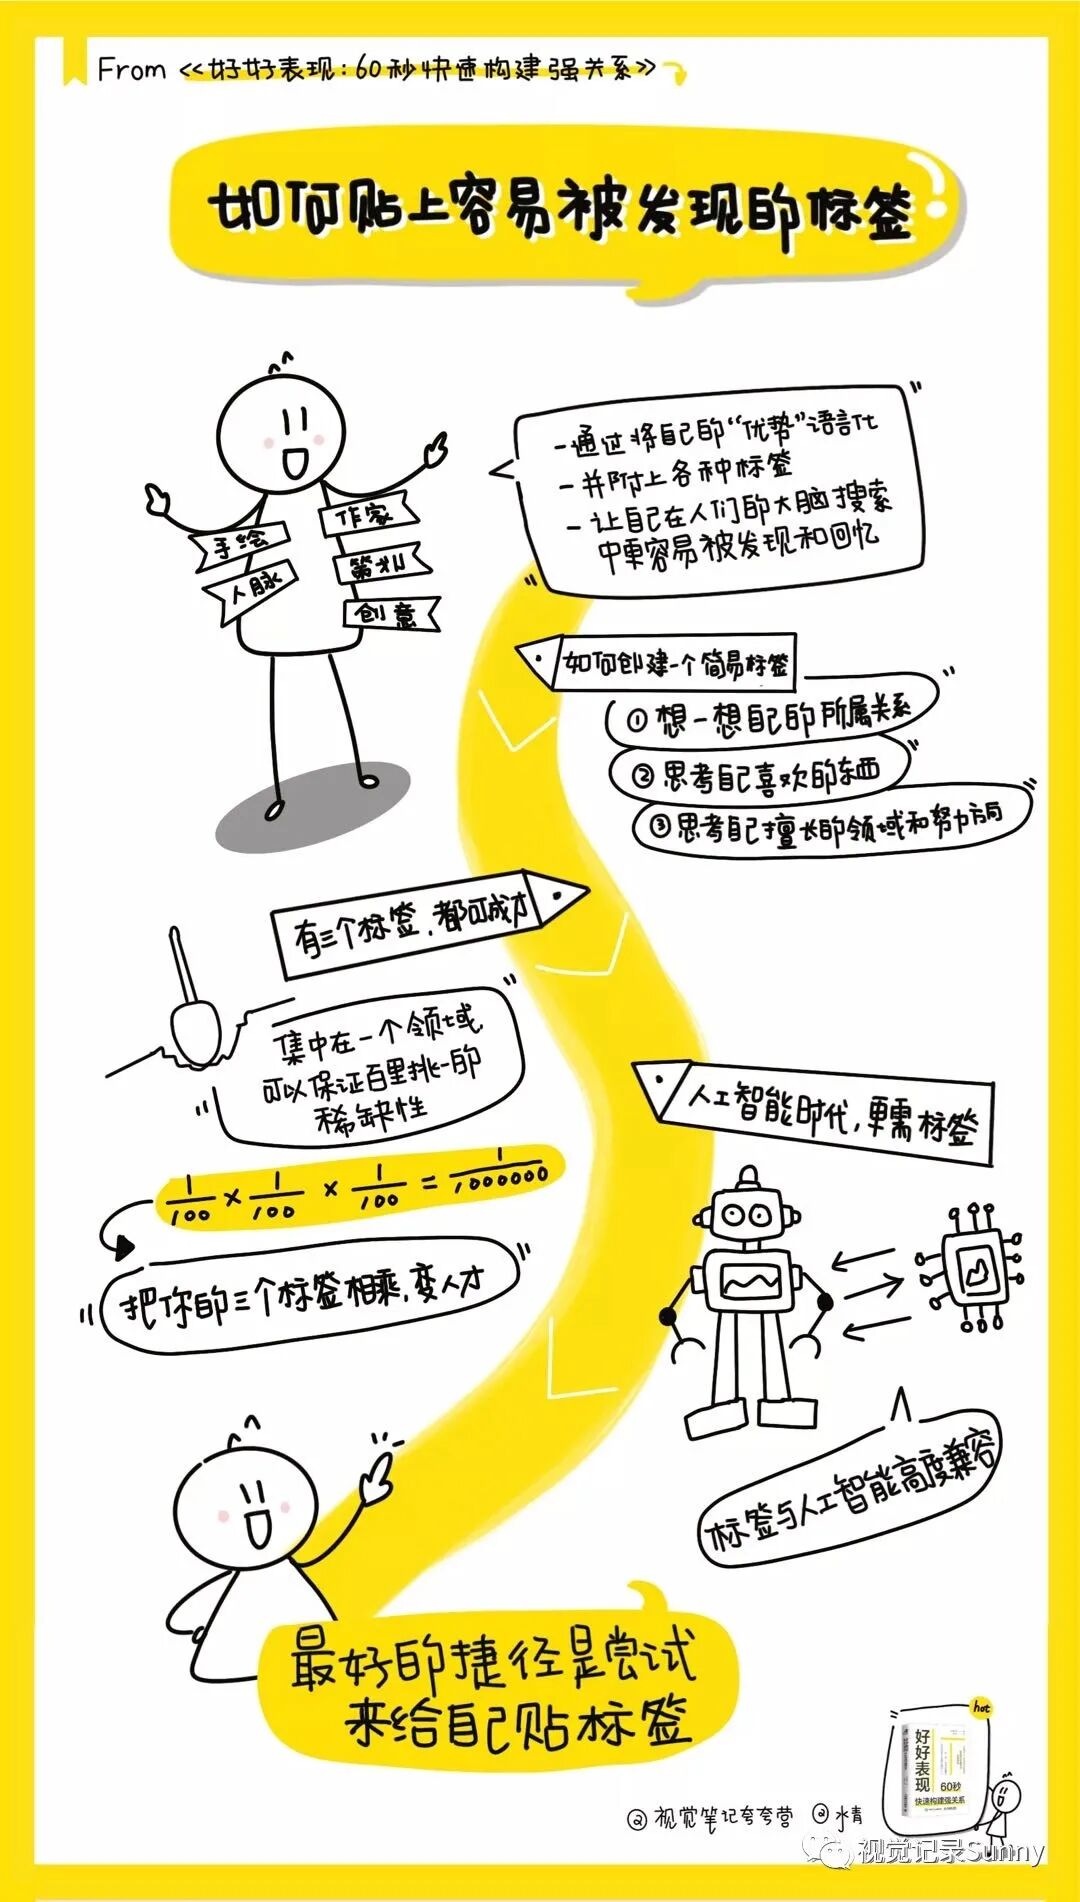 From《好好表现：60秒快速构建强关系》
如何贴上容易被发现的标签
手绘
人脉
作家
策划
创意
-通过将自己的“优势”语言化
-并附上各种标签
-让自己在人们的大脑搜索
中更容易被发现和回忆
如何创建一个简易标签
①想一想自己的所属关系
②思考自己喜欢的东西
③思考自己擅长的领域和努力方向
有三个标签，都可成才
集中在一个领域，
可以保证百里挑一的
稀缺性
1/100 × 1/100 × 1/100 = 1/1000000
把你的三个标签相乘，变人才
人工智能时代，更需标签
标签与人工智能高度兼容
最好的捷径是尝试
来给自己贴标签
hot
好好表现
60秒
快速构建强关系
@视觉笔记夸夸营 @水青
视觉记录Sunny